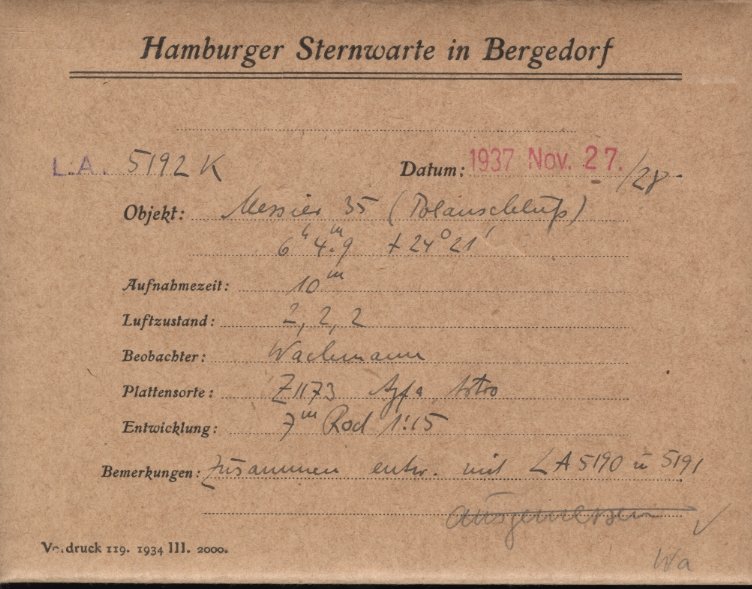 Hamburger Sternwarte in Bergedorf
L.A. 5192 K Datum: 1937 Nov. 27./28.
Objekt: Messier 35 (Polanschluß)
6h 4m.9 +24° 21'
Aufnahmezeit: 10m
Luftzustand: 2, 2, 2
Beobachter: Wachmann
Plattensorte: Z1173 Agfa Astro
Entwicklung: 7m Rod 1:15
Bemerkungen: Zusammen entw. mit LA 5190 u 5191
ausgemessen ✓
Wa
Vordruck 119. 1934 III. 2000.